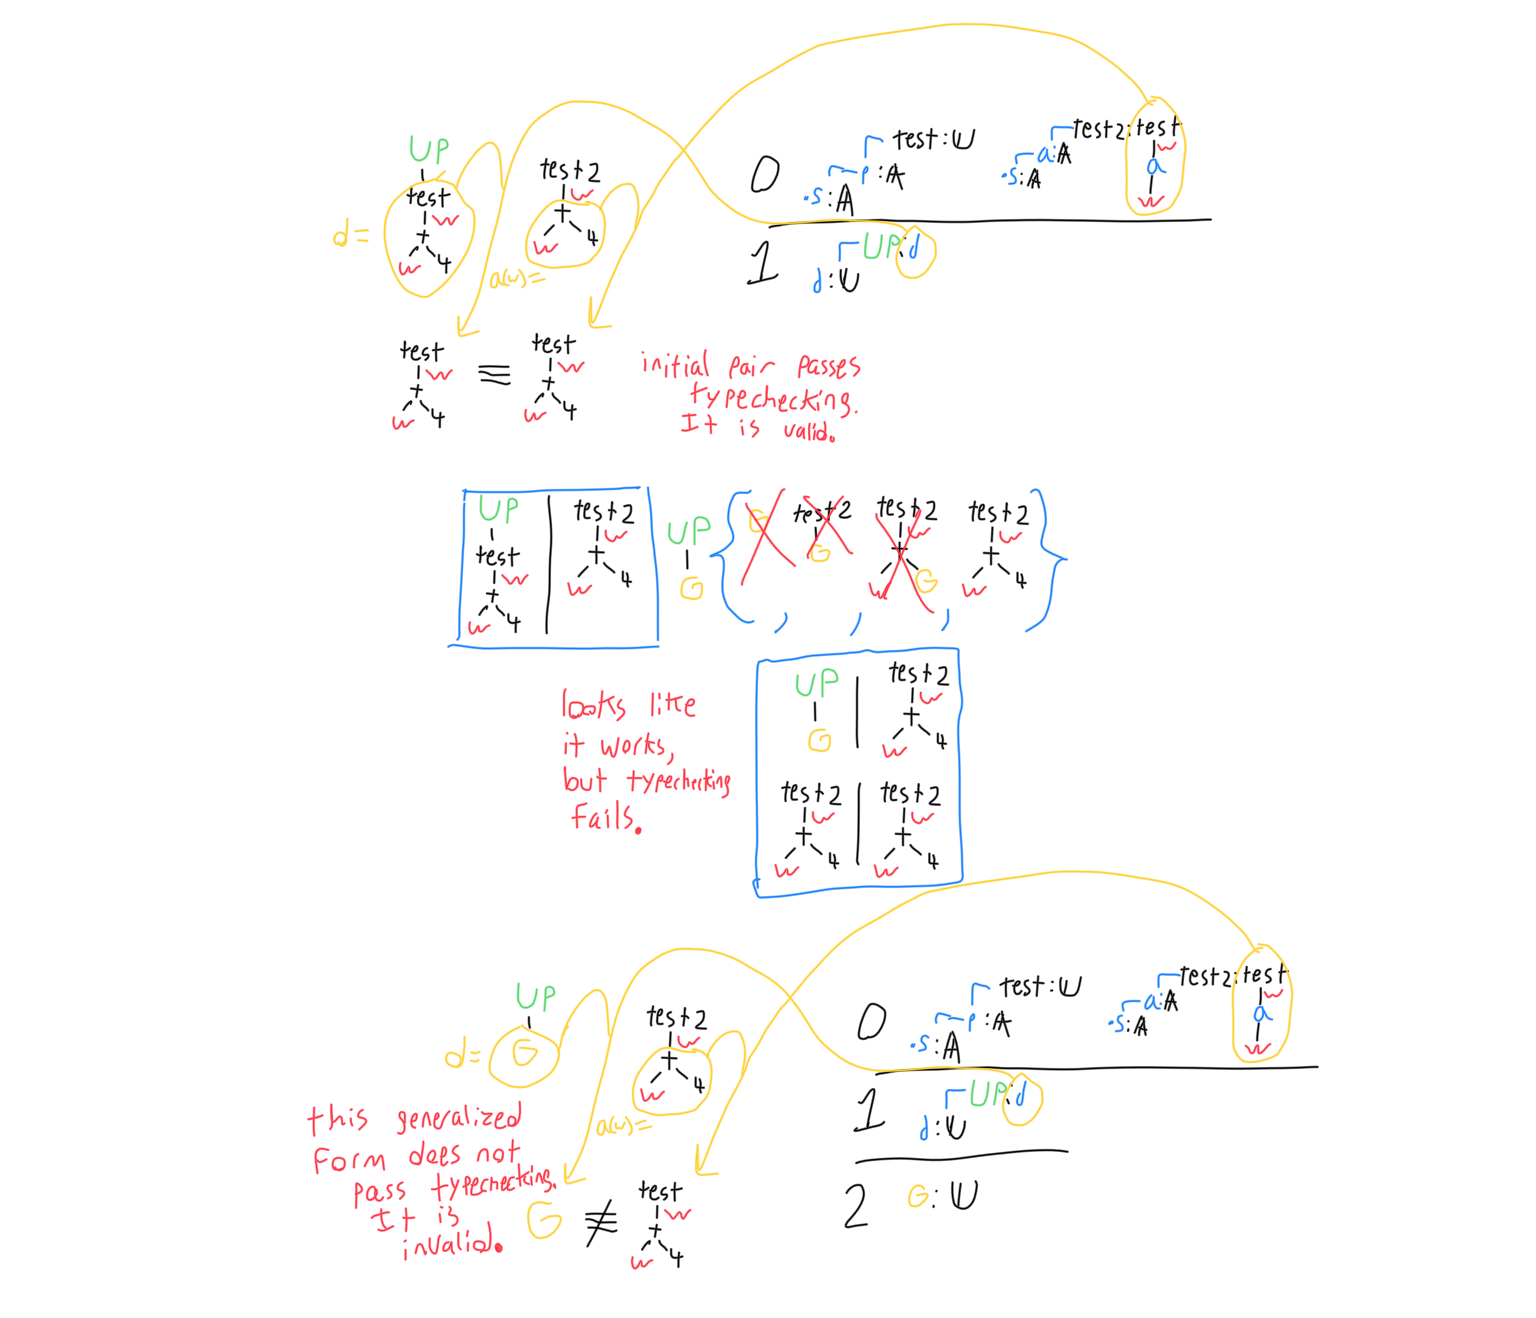 UP
test
w
+
w 4
d =
test2
w
+
w 4
a(w)=
0
test:U
p:A
.s:A
test2:test
w
a:A
a
.s:A
w
1
UP:d
d:U
test
w
+
w 4
≡
test
w
+
w 4
initial pair passes
typechecking.
It is valid.
UP
test
w
+
w 4
test2
w
+
w 4
UP
G
{
G
,
test2
G
,
test2
w
+
w G
,
test2
w
+
w 4
}
looks like
it works,
but typechecking
fails.
UP
G
test2
w
+
w 4
test2
w
+
w 4
test2
w
+
w 4
UP
d= G
test2
w
+
w 4
a(w)=
0
test:U
p:A
.s:A
test2:test
w
a:A
a
.s:A
w
1
UP:d
d:U
2
G:U
this generalized
form does not
pass typechecking.
It is
invalid.
G ≢
test
w
+
w 4